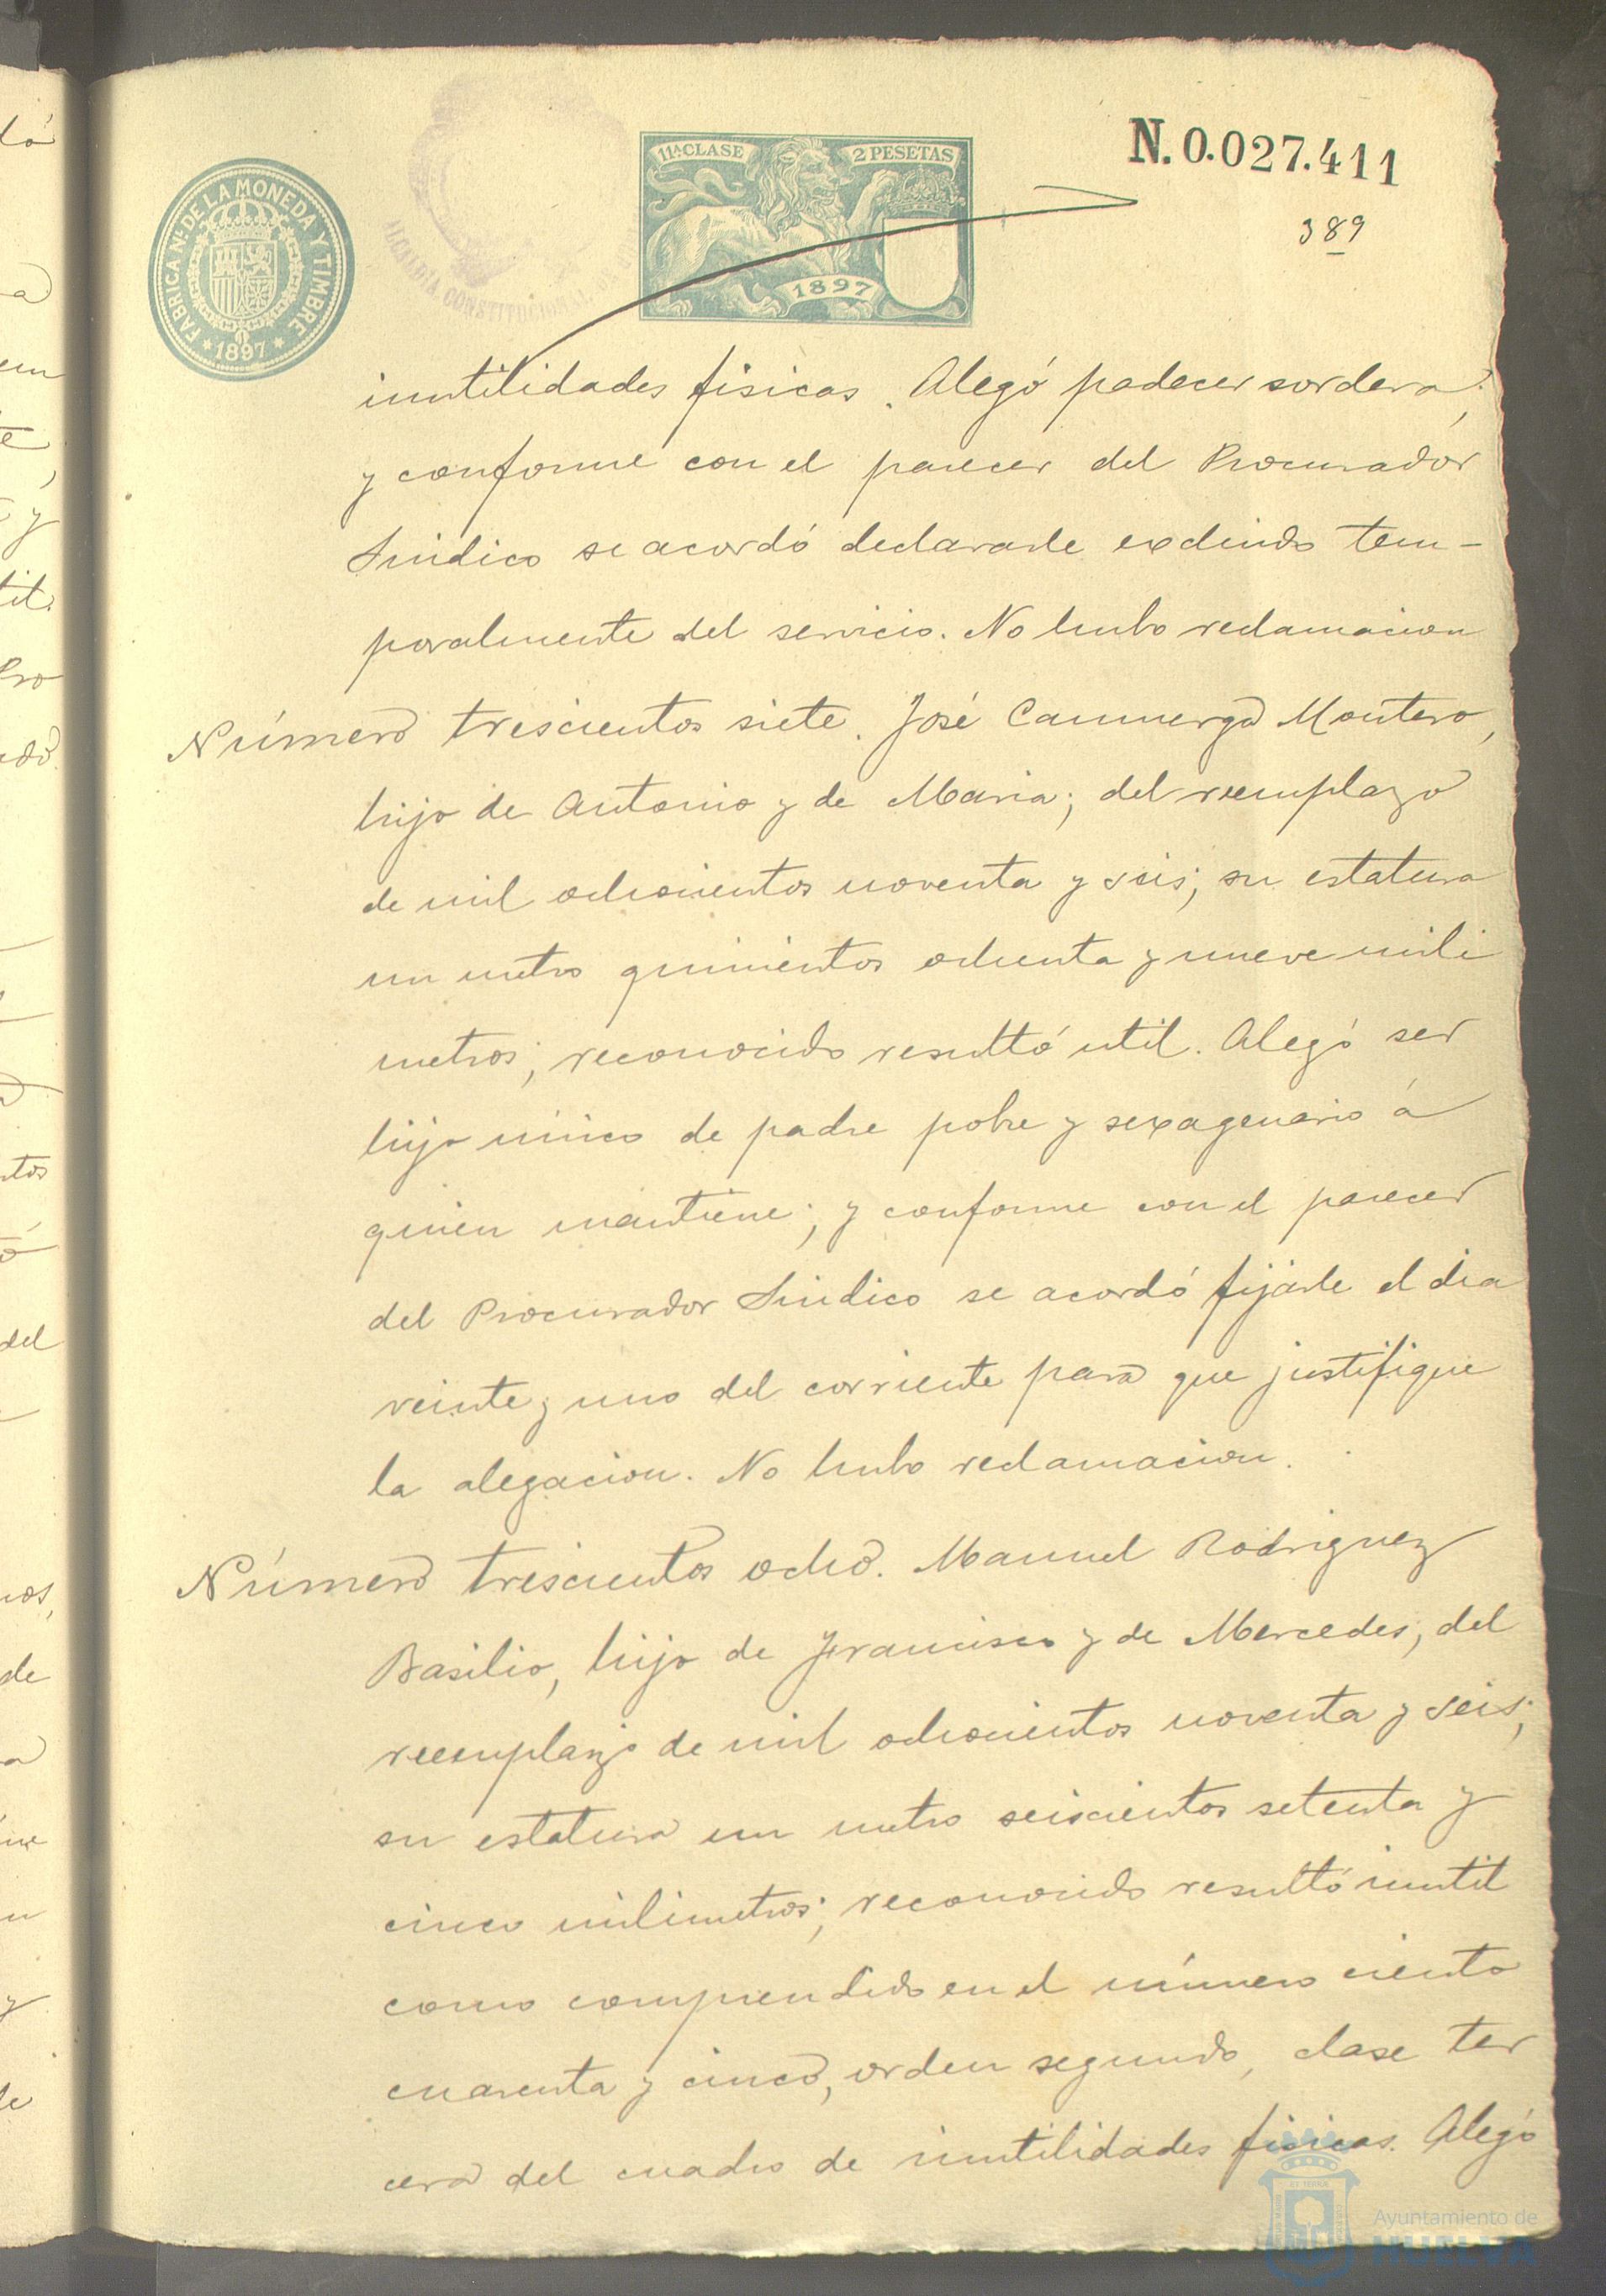 FABRICA Nᴸ DE LA MONEDA Y TIMBRE
* 1897 *
ALCALDIA CONSTITUCIONAL
11ª CLASE
2 PESETAS
1897
N. 0.027.411
389
inutilidades fisicas. Alegó padecer sordera;
y conforme con el parecer del Procurador
Sindico se acordó declararle excluido tem-
poralmente del servicio. No hubo reclamacion
Número trescientos siete. José Montero,
hijo de Antonio y de Maria; del reemplazo
de mil ochocientos noventa y seis; su estatura
un metro quinientos ochenta y nueve mili
metros; reconocido resultó util. Alegó ser
hijo único de padre pobre y sexagenario á
quien mantiene; y conforme con el parecer
del Procurador Sindico se acordó fijarle el dia
veinte y uno del corriente para que justifique
la alegacion. No hubo reclamacion.
Número trescientos ocho. Manuel Rodriguez
Basilio, hijo de Francisco y de Mercedes, del
reemplazo de mil ochocientos noventa y seis;
su estatura un metro seiscientos setenta y
cinco milimetros; reconocido resultó inutil
como comprendido en el número ciento
cuarenta y cinco, orden segundo, clase ter
cera del cuadro de inutilidades fisicas. Alegó
Ayuntamiento de
HUELVA